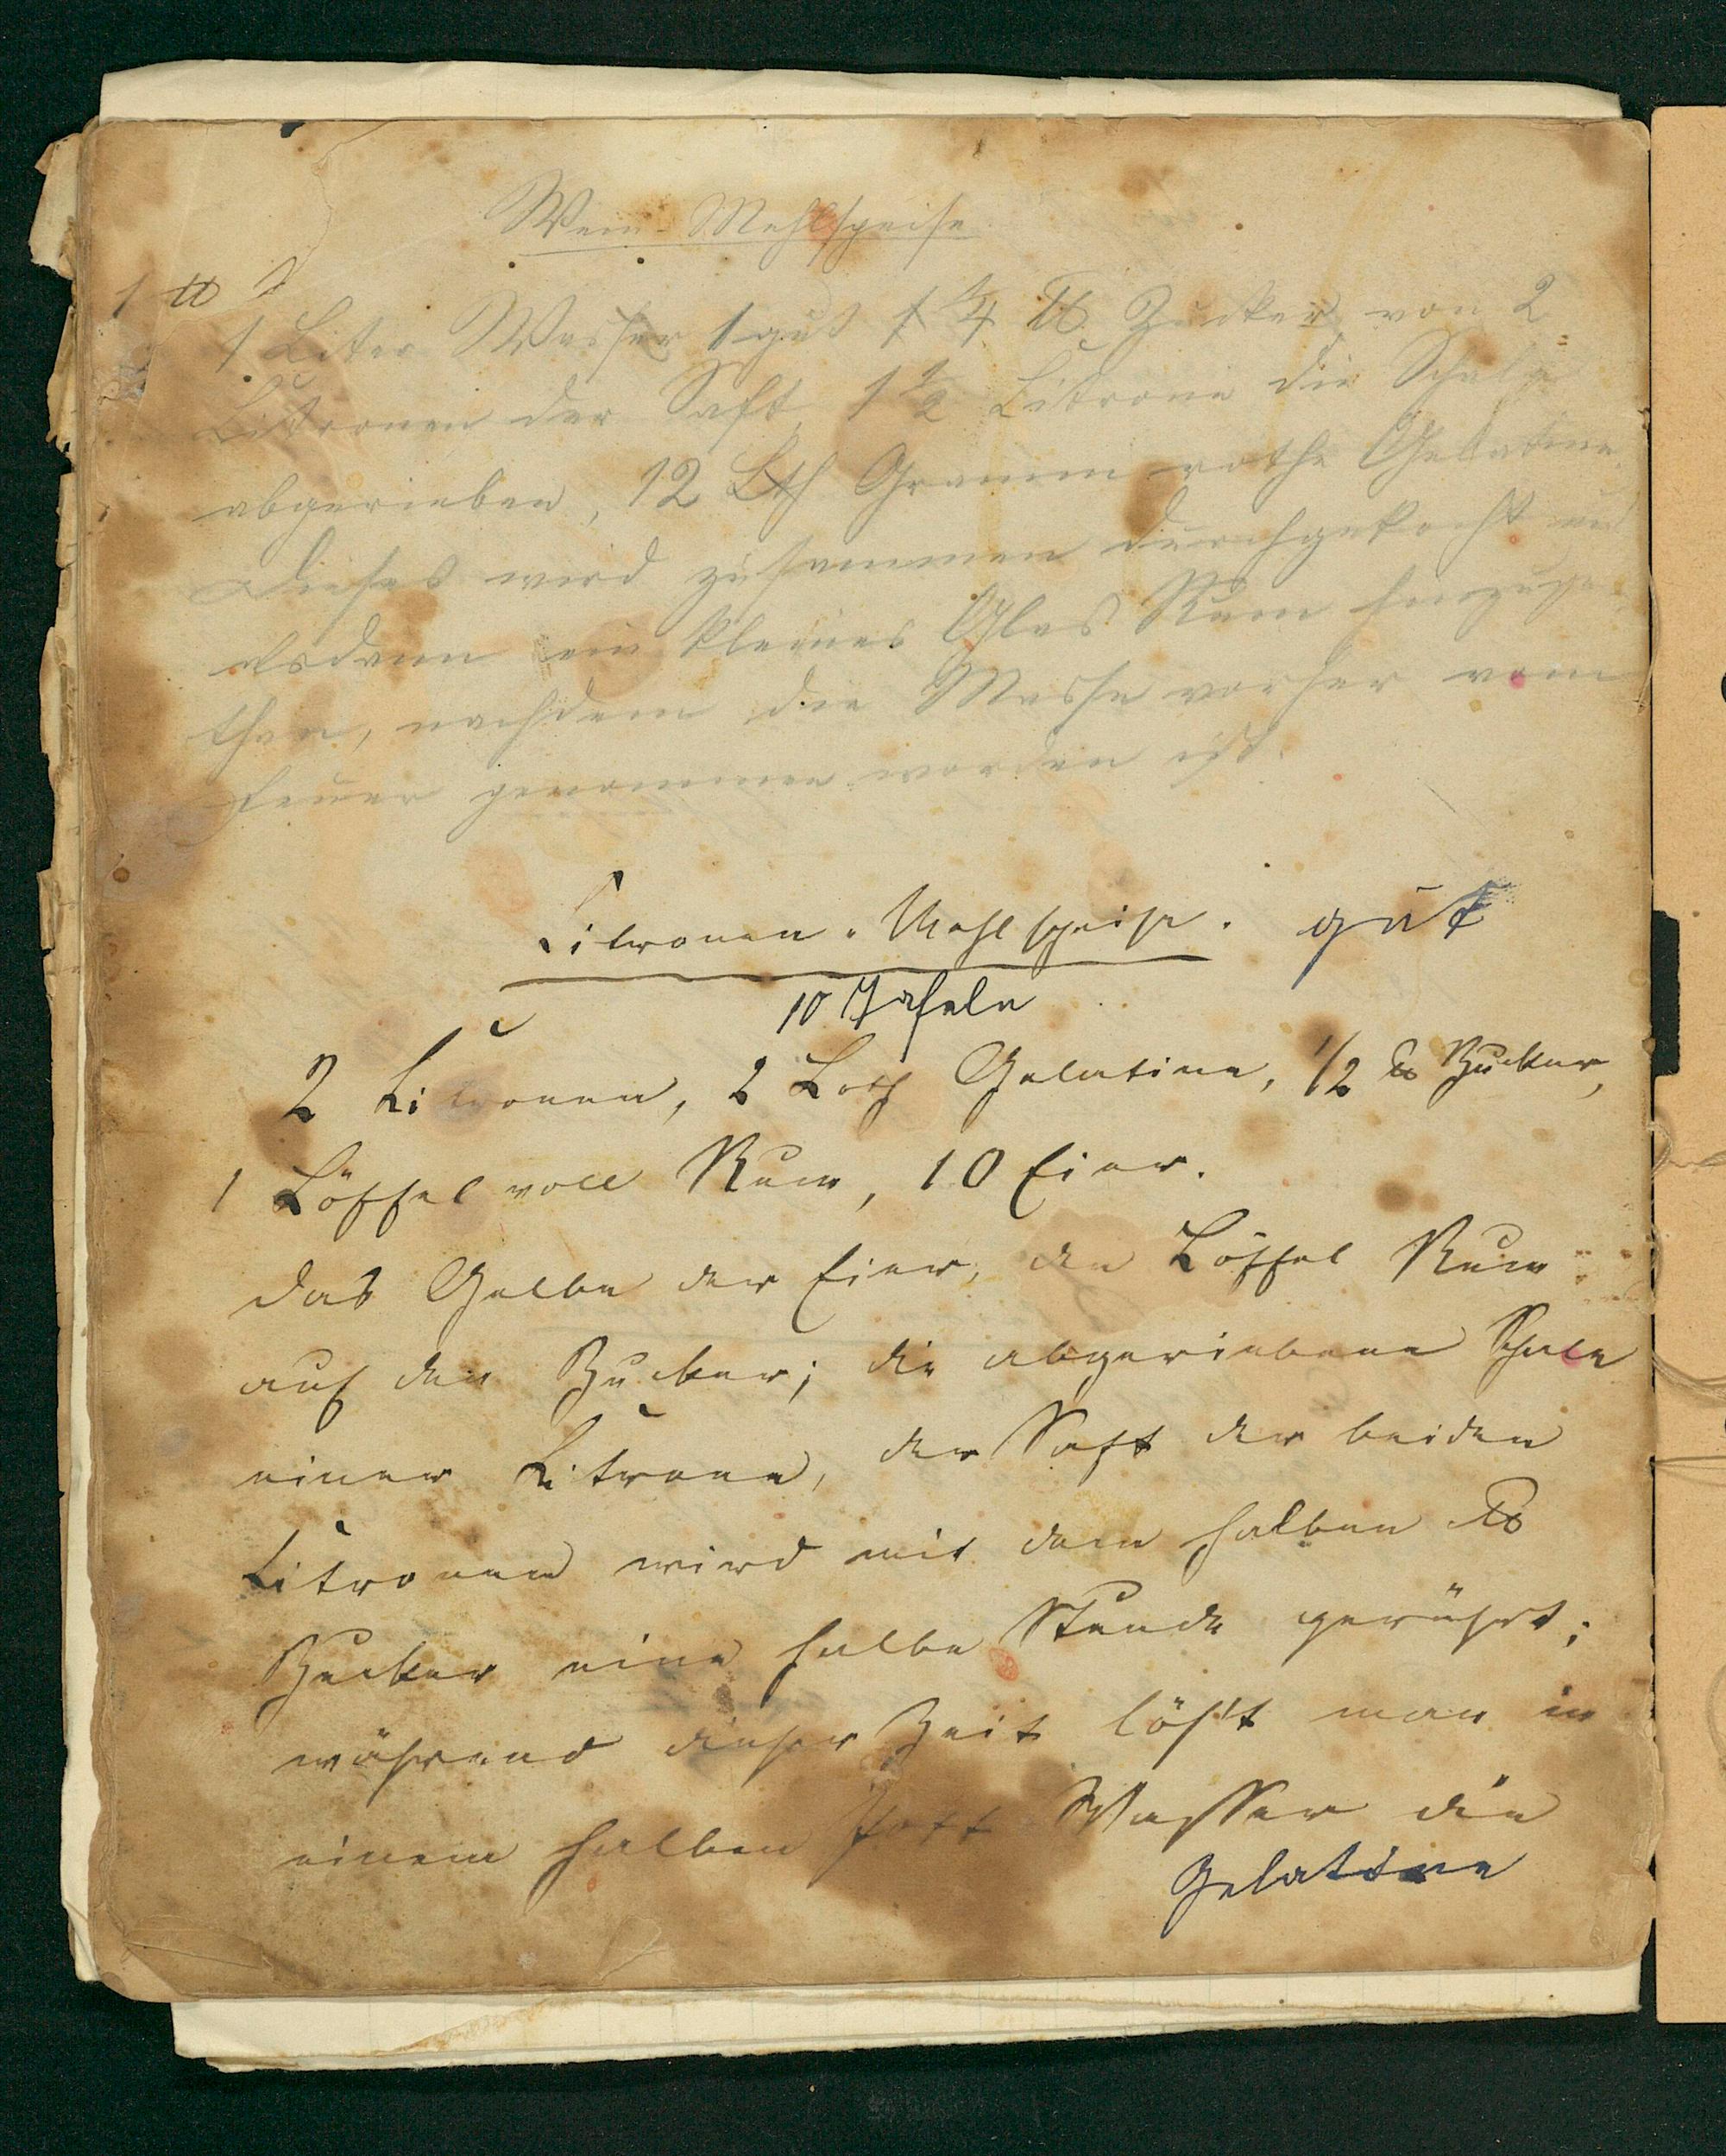 Wein-Mehlspeise
1 ℔
1 Liter Wasser 1 gut 1 1/4 ℔ Zucker von 2
Citronen der Saft, 1 1/2 Citrone die Schale
abgerieben, 12 Lth Gramm rothe Gelatine.
Dieses wird zusammen durchgekocht und
alsdann ein kleines Glas Rum hinzuge-
than, nachdem die Masse vorher vom
Feuer genommen worden ist.
Citronen-Mehlspeise. gut
10 Tafeln
2 Citronen, 2 Loth Gelatine, 1/2 ℔ Zucker,
1 Löffel voll Rum, 10 Eier.
Das Gelbe der Eier, den Löffel Rum
auf den Zucker; die abgeriebene Schale
einer Citrone, der Saft der beiden
Citronen wird mit dem halben ℔
Zucker eine halbe Stunde gerührt;
während dieser Zeit lös't man in
einem halben Pott Wasser die
Gelatine